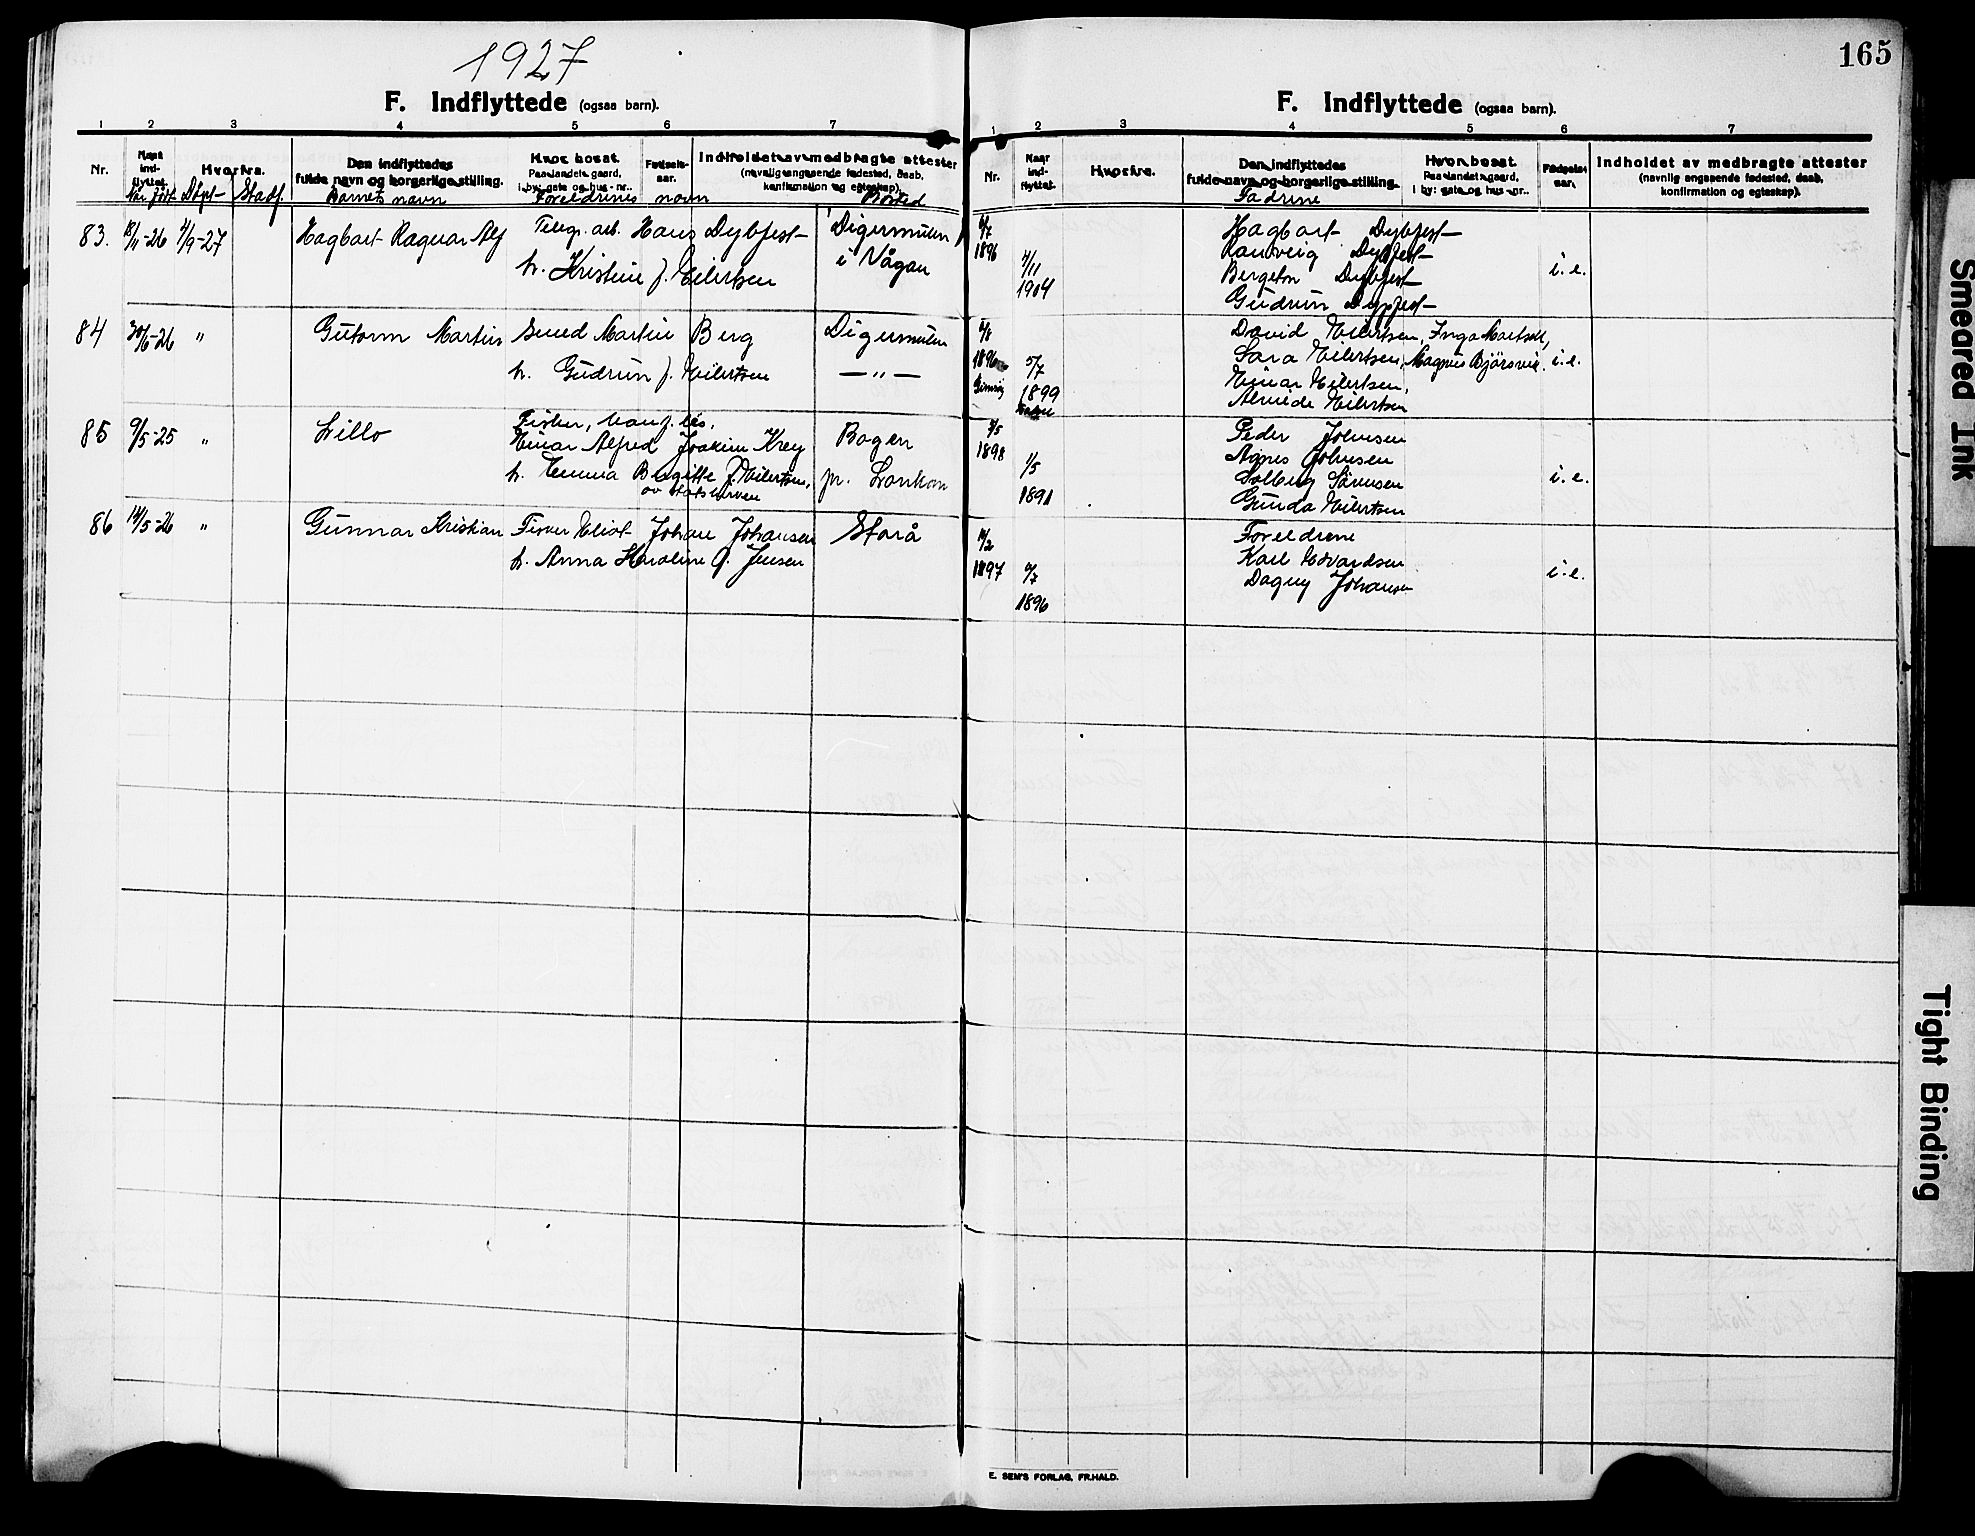 1927
165
F. Indflyttede (ogsaa barn).
1 2 3 4 5 6 7
Nr.
Naar ind-flyttet.
Hvorfra.
Den indflyttedes fulde navn og borgerlige stilling.
Hvor bosat.
Paa landet: gaard,
i by: gate og hus-nr..
Fødsels-aar.
Indholdet av medbragte attester
(navnlig angaaende fødested, daab,
konfirmation og egteskap).
Når født Døpt Stadf.
Barnets navn
Foreldrenes navn
Bosted
83. 18/11-26 4/9-27 Hagbart Ragnar Alf
Telegr. arb. Hans Dybfest
h. Kristine f. Eilertsen
Digermulen
i Vågan
84 30/6-26 " Gutorm Martin
Smed Martin Berg
h. Gudrun f. Eilertsen
Digermulen
— " —
85 9/5-25 " Lillo
Einar Alfred Joakim Krey
h. Emma Bergitte f. Eilertsen,
av statskirken
Bogen
pr. Lonkan
86 14/5-26 " Gunnar Kristian
Fisker Eliot Johan Johansen
h. Anna Karoline f. Jensen
Storå
F. Indflyttede (ogsaa barn).
1 2 3 4 5 6 7
Nr.
Naar ind-flyttet.
Hvorfra.
Den indflyttedes
fulde navn og borgerlige stilling.
Hvor bosat.
Paa landet: gaard,
i by: gate og hus-nr..
Fødsels-aar.
Indholdet av medbragte attester
(navnlig angaaende fødested, daab,
konfirmation og egteskap).
Fadrene
1896
1904
Hagbart Dybfest
Ranveig Dybfest
Bergeton Dybfest
Gudrun Dypfest
i.e.
1896
5/7
1899
David Eilertsen, Inga Martsell,
Sara Eilertsen, Magnus Bjørsvik.
Einar Eilertsen,
Almide Eilertsen
i.e.
1898
1/5
1891
Peder Johnsen
Agnes Johnsen
Solberg Sørensen
Gunda Eilertsen
i.e.
1897
1896
Foreldrene
Karl Edvardsen
Dagny Johansen
i.e.
E. SEM'S FORLAG, FR.HALD.
Smeared Ink
Tight Binding